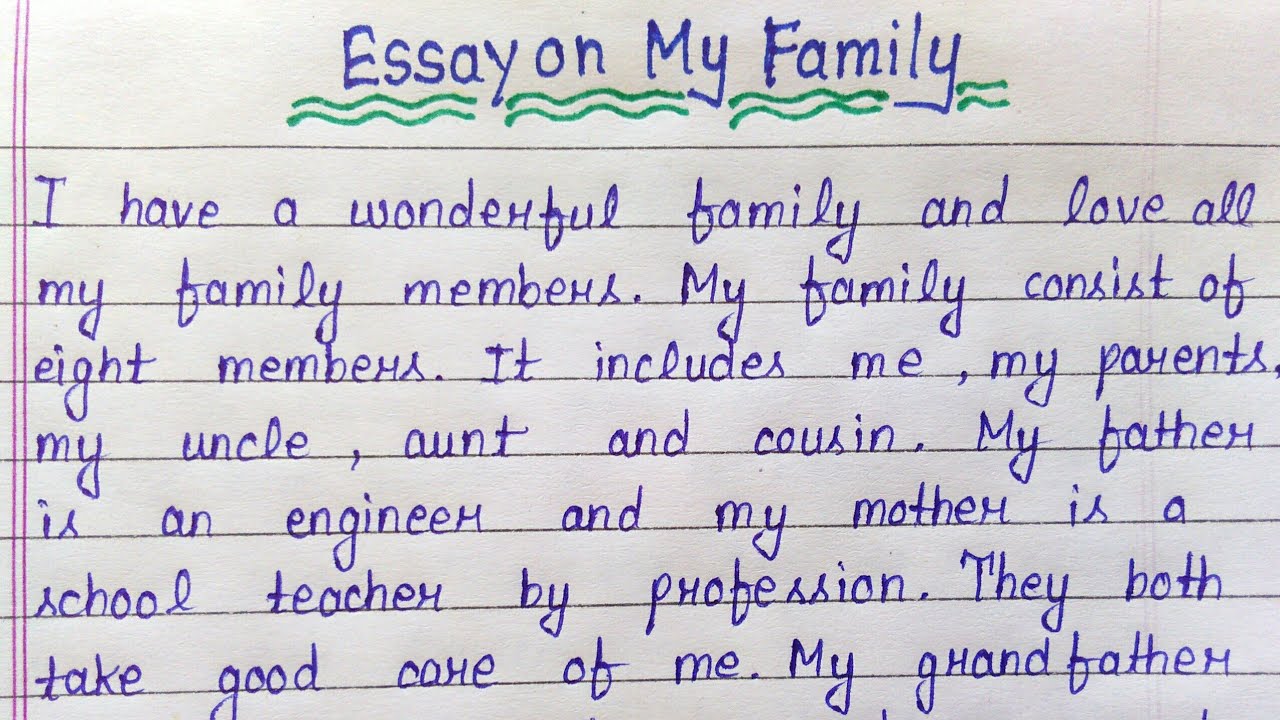 Essay on My Family
I have a wonderful family and love all
my family members. My family consist of
eight members. It includes me, my parents,
my uncle, aunt and cousin. My father
is an engineer and my mother is a
school teacher by profession. They both
take good care of me. My grandfather